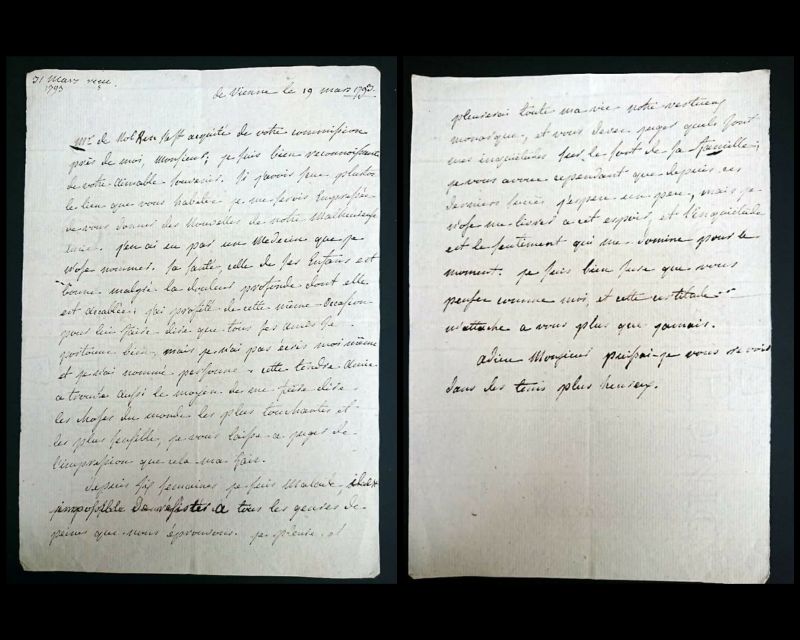 31 Mars recu.
1793
de Vienne le 19 mars 1793.
Mr de s'est acquité de votre commission
près de moi, monsieur, je suis bien reconnoissante
de votre aimable souvenir. Si j'avois seu plustôt
le lieu que vous habitée je me serois empressée
de vous donner des Nouvelles de notre Malheureuse
j'en ai eu par un Medecin que je
n'ose nommer. Sa santé, celle de ses Enfans est
bonne malgré la douleur profonde dont elle
est accablée; j'ai profité de cette même occasion
pour lui faire dire que tous ses amis se
portoient bien, mais je n'ai pas écris moi même
et je n'ai nommé personne, cette tendre amie
a trouvé aussi le moyen de me faire dire
les choses du monde les plus touchantes et
les plus sensible, je vous laisse a juger de
l'impression que cela m'a fait.
Depuis six semaines je suis Malade, il est
impossible de résister à tous les genres de
peines que nous éprouvons. je pleure, et
pleurerai toute ma vie notre vertueux
monarque, et vous devez juger quels sont
mes inquiétudes sur le sort de sa famille;
je vous avoue cependant que depuis ces
derniers succés j'espere un peu, mais je
n'ose me livrer a cet espoir, et l'inquiétude
est le sentiment qui me domine pour le
moment. je suis bien sure que vous
pensez comme moi, et cette certitude
m'attache a vous plus que jamais.
adieu Monsieur puissai-je vous revoir
dans des tems plus heureux.